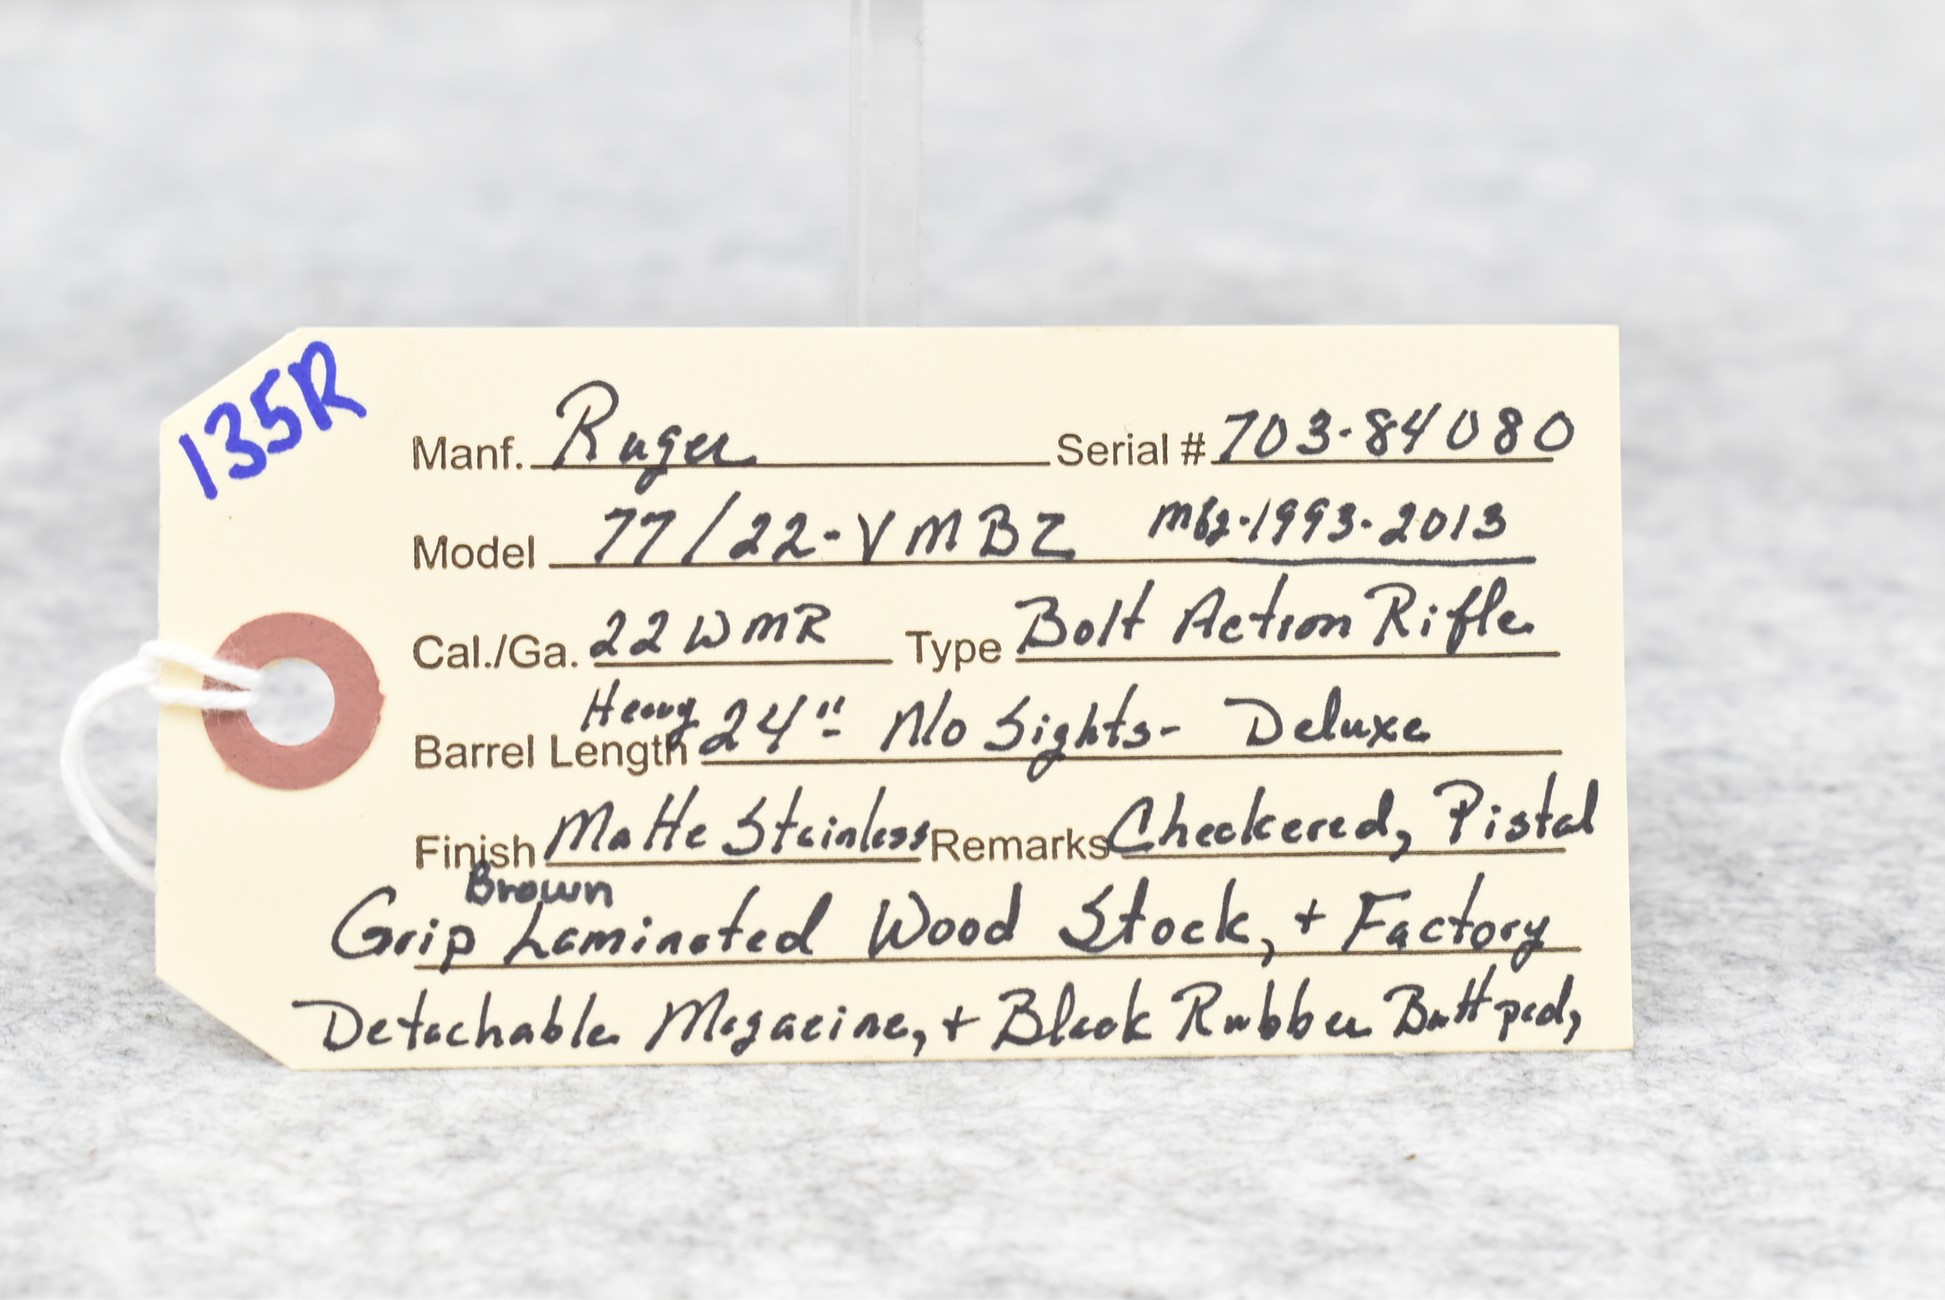 135R
Manf. Ruger Serial # 703-84080
Model 77/22-VMBZ Mfg-1993-2013
Cal./Ga. 22 WMR Type Bolt Action Rifle
Heavy
Barrel Length 24" No Sights- Deluxe
Finish Matte Stainless Remarks Checkered, Pistal
Brown
Grip Laminated Wood Stock, + Factory
Detachable Magazine, + Black Rubber Buttpad,